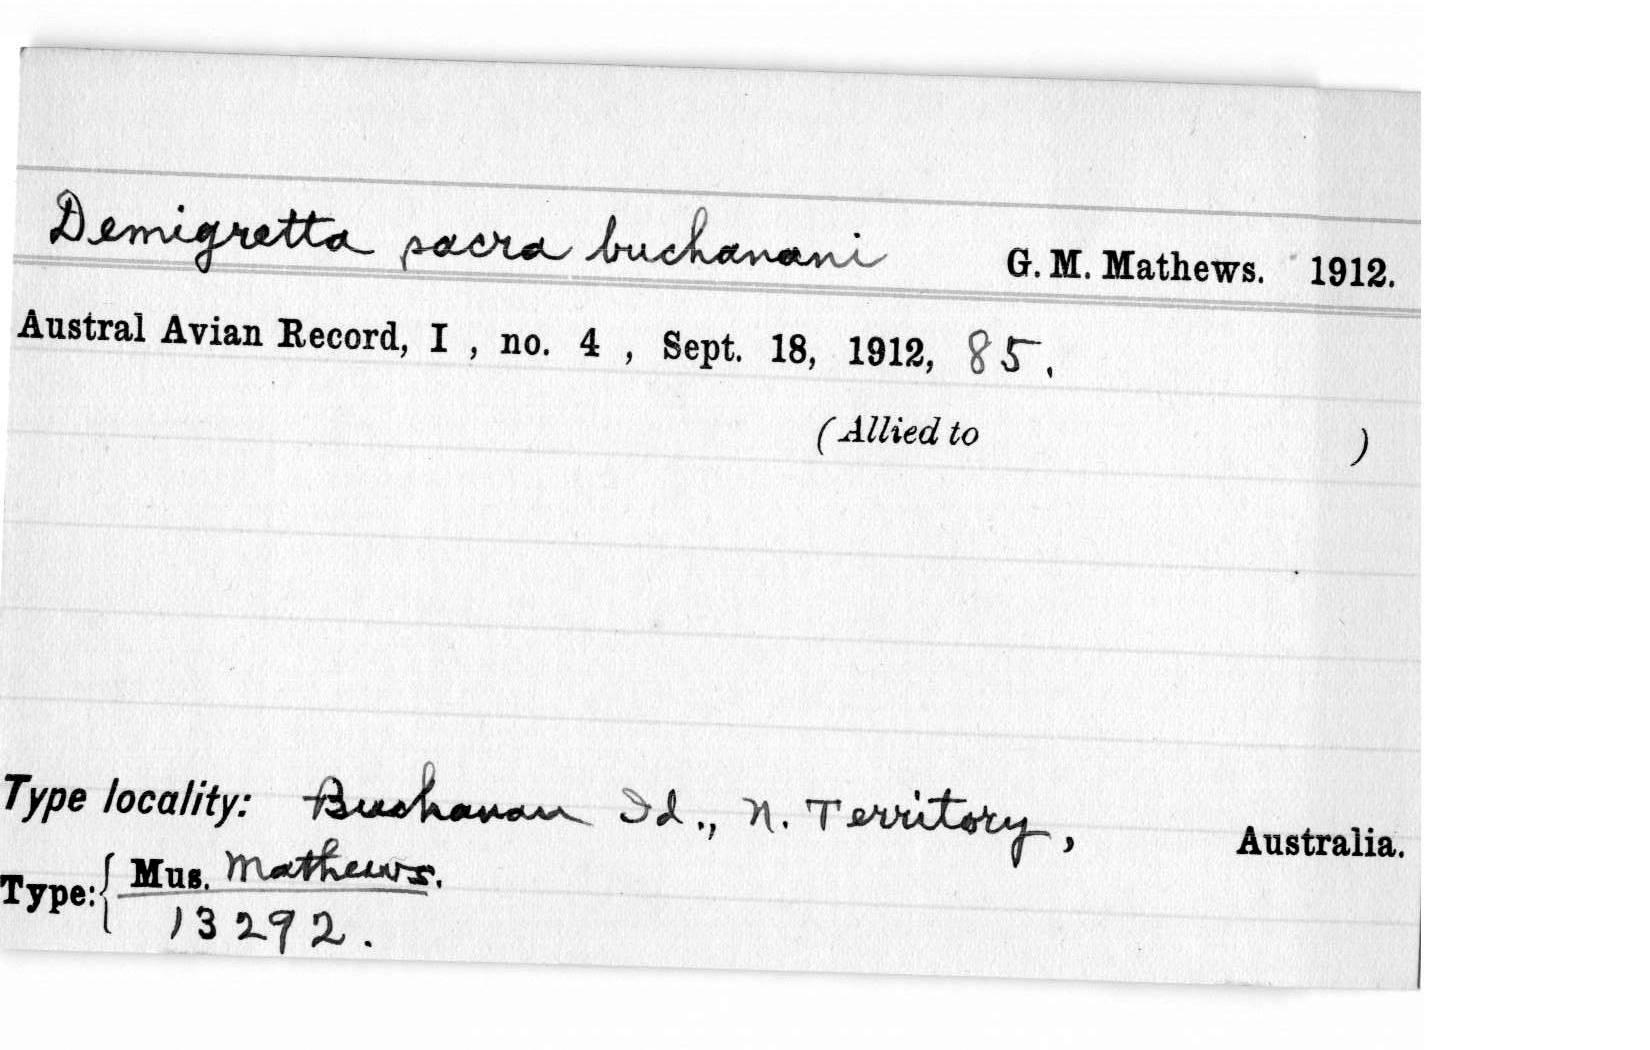 Demigretta sacra buchanani G. M. Mathews. 1912.
Austral Avian Record, I , no. 4 , Sept. 18, 1912, 85.
(Allied to )
Type locality: Buchanan Id., N. Territory, Australia.
Type: { Mus. Mathews.
13292.